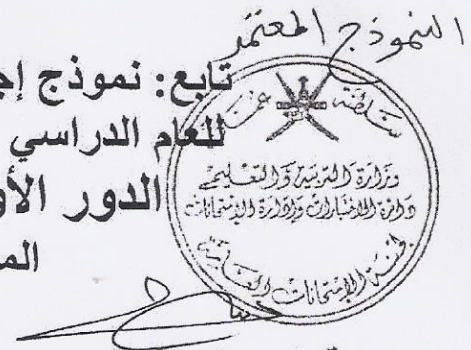 النموذج المعتمد
تابع: نموذج إج
للعام الدراسي
الدور الأو
الم
سلطنة عمان
وزارة التربية والتعليم
دائرة الامتحانات وإدارة الامتحانات
لجنة الامتحانات العامة